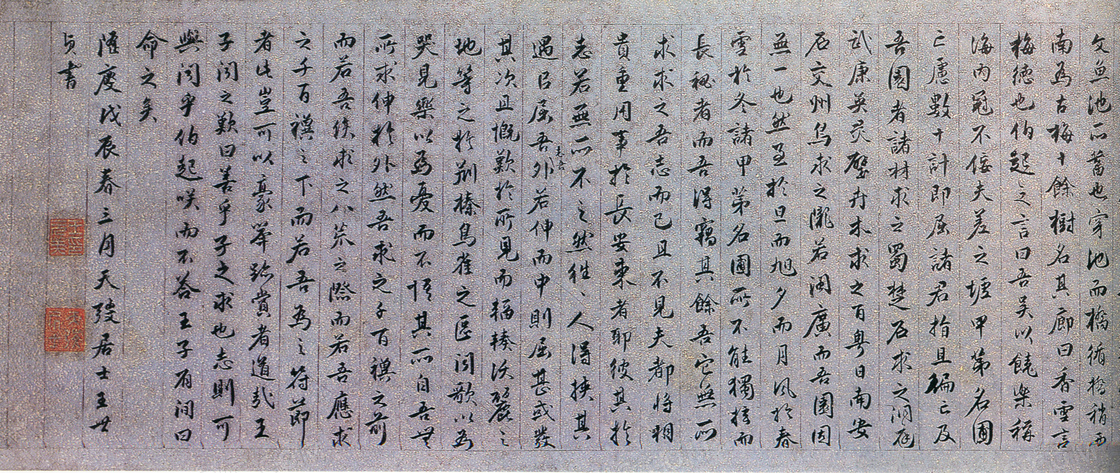 文魚池所蓄也穿池而橋循橋稍西
南為古梅十餘樹名其廊曰香雪言
梅德也伯起之言曰吾吳以饒樂稱
海內冠不佞夫差之墟甲第名園
亡慮數十計即屈諸君指且徧亡及
吾園者諸材求之蜀楚石求之洞庭
武康英靈壁卉木求之百粵日南安
石交州鳥求之隴若閩廣而吾園固
無一也然至於旦而旭夕而月風於春
雪於冬諸甲第名園所不能獨擅而
長秘者而吾得竊其餘吾它無所
求求之吾志而已且不見夫都將相
貴重用事於長安東者耶彼其於
志若無所不之然往、人得挾其
遇以屈吾外若伸而中則屈甚或發
其次且慨歎於所見而福榛沃麗之
地等之於荊榛鳥雀之區聞歌以為
哭見樂以為憂而不悟其所自吾無
所求伸於外然吾求之千百禩之前
而若吾俟求之八荒之際而若吾應求
之千百禩之下而若吾為之符節
者此豈可以豪舉跡賞者道哉王
子聞之歎曰善乎子之求也志則可
與聞乎伯起咲而不答王子有間曰
命之矣
隆慶戊辰春三月天弢居士王世
貞書